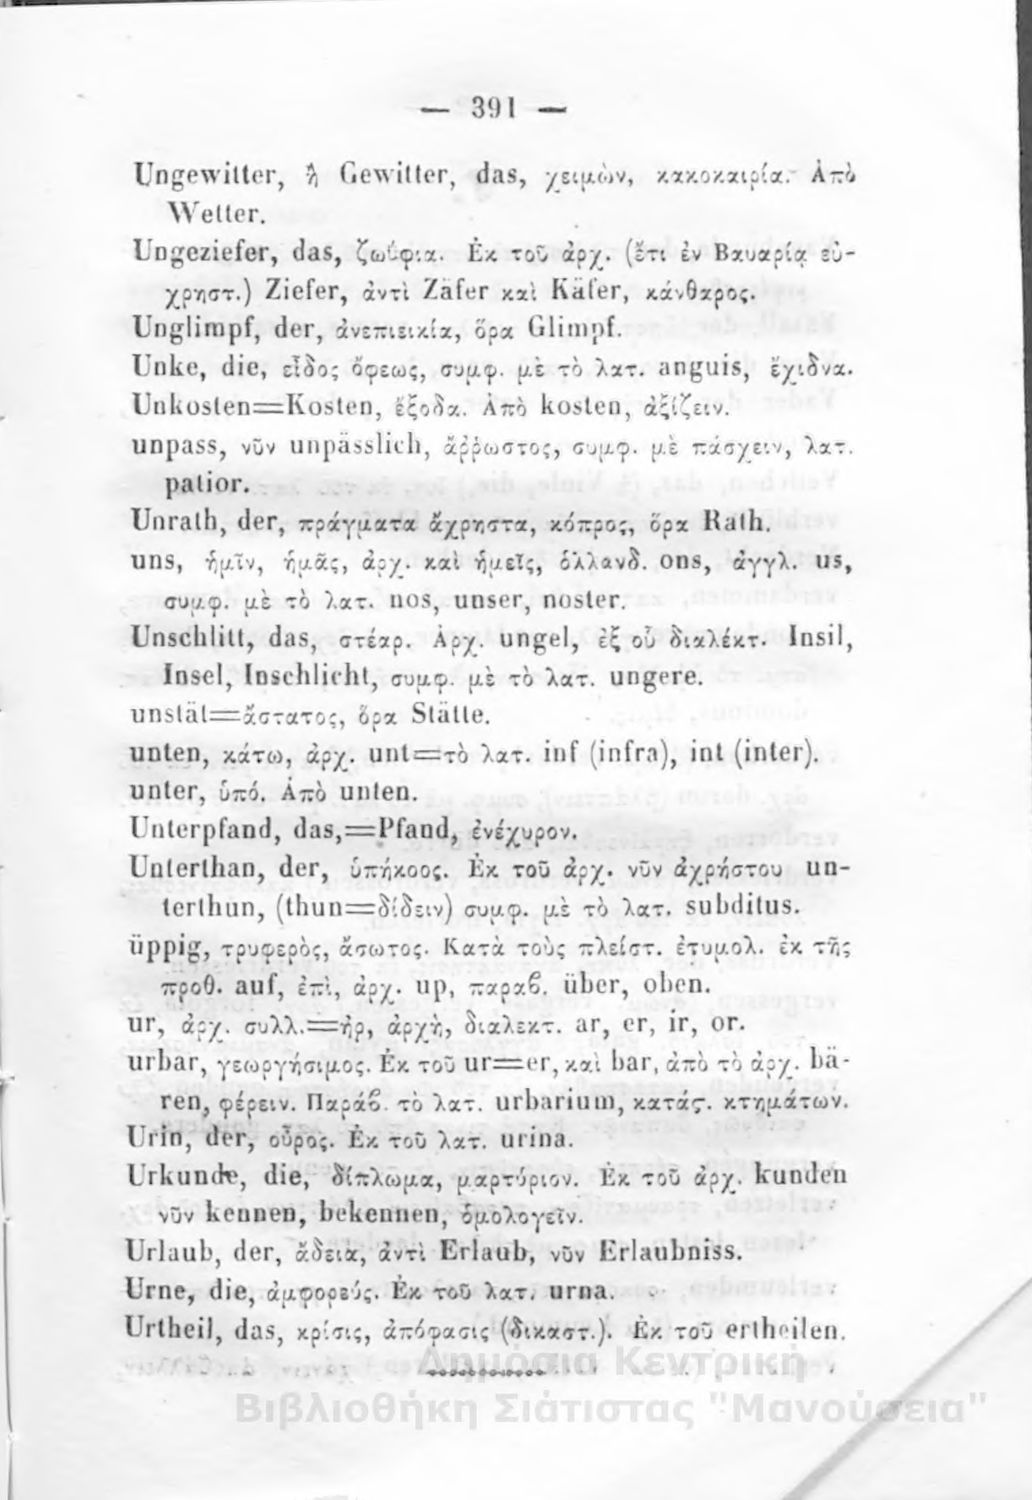 — 391 —
Ungewitter, ἢ Gewitter, das, χειμὼν, κακοκαιρία. Ἀπὸ
Wetter.
Ungeziefer, das, ζωΰφια. Ἐκ τοῦ ἀρχ. (ἔτι ἐν Βαυαρίᾳ εὐ-
χρηστ.) Ziefer, ἀντὶ Zäfer καὶ Käfer, κάνθαρος.
Unglimpf, der, ἀνεπιεικία, ὅρα Glimpf.
Unke, die, εἶδος ὄφεως, συμφ. μὲ τὸ λατ. anguis, ἔχιδνα.
Unkosten=Kosten, ἔξοδα. Ἀπὸ kosten, ἀξίζειν.
unpass, νῦν unpässlich, ἄῤῥωστος, συμφ. μὲ πάσχειν, λατ.
patior.
Unrath, der, πράγματα ἄχρηστα, κόπρος, ὅρα Rath.
uns, ἡμῖν, ἡμᾶς, ἀρχ. καὶ ἡμεῖς, ὁλλανδ. ons, ἀγγλ. us,
συμφ. μὲ τὸ λατ. nos, unser, noster.
Unschlitt, das, στέαρ. Ἀρχ. ungel, ἐξ οὗ διαλέκτ. Insil,
Insel, Inschlicht, συμφ. μὲ τὸ λατ. ungere.
unstät=ἄστατος, ὅρα Stätte.
unten, κάτω, ἀρχ. unt=τὸ λατ. inf (infra), int (inter).
unter, ὑπό. Ἀπὸ unten.
Unterpfand, das,=Pfand, ἐνέχυρον.
Unterthan, der, ὑπήκοος. Ἐκ τοῦ ἀρχ. νῦν ἀχρήστου un-
terthun, (thun=δίδειν) συμφ. μὲ τὸ λατ. subditus.
üppig, τρυφερὸς, ἄσωτος. Κατὰ τοὺς πλείστ. ἐτυμολ. ἐκ τῆς
προθ. auf, ἐπὶ, ἀρχ. up, παραβ. über, oben.
ur, ἀρχ. συλλ.=ἠρ, ἀρχὴ, διαλεκτ. ar, er, ir, or.
urbar, γεωργήσιμος. Ἐκ τοῦ ur=er, καὶ bar, ἀπὸ τὸ ἀρχ. bä-
ren, φέρειν. Παράβ. τὸ λατ. urbarium, κατάστ. κτημάτων.
Urin, der, οὖρος. Ἐκ τοῦ λατ. urina.
Urkunde, die, δίπλωμα, μαρτύριον. Ἐκ τοῦ ἀρχ. kunden
νῦν kennen, bekennen, ὁμολογεῖν.
Urlaub, der, ἄδεια, ἀντὶ Erlaub, νῦν Erlaubniss.
Urne, die, ἀμφορεύς. Ἐκ τοῦ λατ. urna.
Urtheil, das, κρίσις, ἀπόφασις (δικαστ.). Ἐκ τοῦ ertheilen.
Δημόσια Κεντρική
Βιβλιοθήκη Σιάτιστας "Μανούσεια"